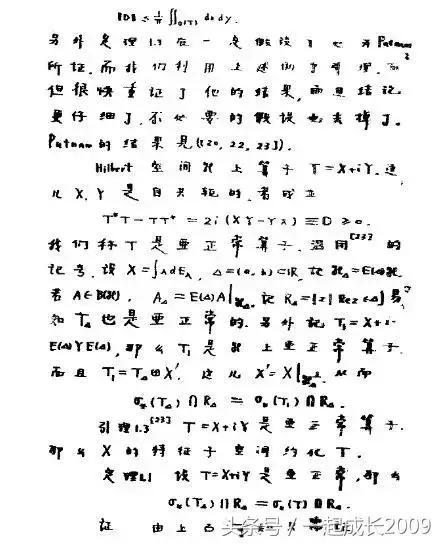 ‖D‖ ≤ 1/π ∬σ(T) dxdy.
另外定理1.3在一定假设下也为Putnam
所证. 而我们利用上述两个引理, 不
但很快重证了他的结果, 而且结论
更仔细了, 不必要的假设也去掉了.
Putnam的结果见([20, 22, 23]).
Hilbert 空间ℋ上算子 T=X+iY, 这
儿 X, Y 是自共轭的, 若成立
T*T-TT* = 2i(XY-YX) ≡ D ≥ 0.
我们称T是亚正常算子. 沿用[23]的
记号, 设 X=∫λdEλ, Δ=(a,b)⊂ℝ, 记 ℋΔ=E(Δ)ℋ
若 A∈B(ℋ), AΔ=E(Δ)A|ℋΔ, 记 RΔ={z|Re z∈Δ} 易
知 TΔ 也是亚正常的. 另外记 T₁=X+i·
E(Δ)YE(Δ), 那么 T₁ 是ℋ上亚正常算子.
而且 T₁=TΔ⊕X', 这儿 X'=X| 从而
(TΔ)∩RΔ = (T₁)∩RΔ.
引理1.3[23] T=X+iY 是亚正常算子.
那么 X 的特征子空间约化 T.
定理1.1 设 T=X+iY 是亚正常, 那么
(TΔ)∩RΔ = (T)∩RΔ.
证 由上
头条号 / 一起成长2009